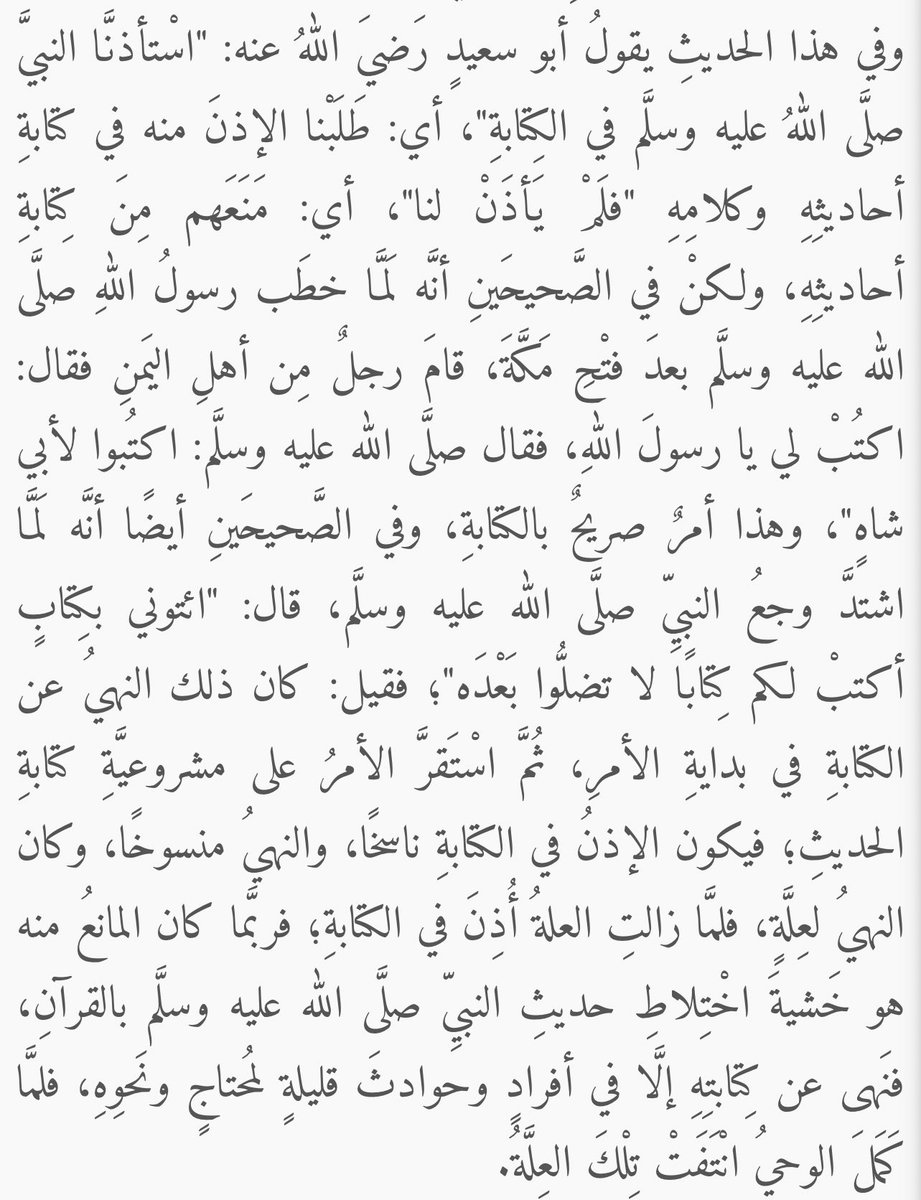 وفي هذا الحديثِ يقولُ أبو سعيدٍ رَضيَ اللهُ عنه: "اسْتأذنَّا النبيَّ
صلَّى اللهُ عليه وسلَّم في الكِتابةِ"، أي: طَلَبْنا الإذنَ منه في كتابةِ
أحاديثِهِ وكلامِهِ "فلَمْ يَأذَنْ لنا"، أي: مَنَعَهم مِنَ كِتابةِ
أحاديثِهِ، ولكنْ في الصَّحيحَينِ أنَّه لَمَّا خطَب رسولُ اللهِ صلَّى
الله عليه وسلَّم بعدَ فتْحِ مَكَّةَ، قامَ رجلٌ مِن أهلِ اليَمنِ فقال:
اكتُبْ لي يا رسولَ اللهِ، فقال صلَّى الله عليه وسلَّم: اكتُبوا لأبي
شاهٍ"، وهذا أمرٌ صريحٌ بالكتابةِ، وفي الصَّحيحَينِ أيضًا أنَّه لَمَّا
اشتدَّ وجعُ النبيِّ صلَّى الله عليه وسلَّم، قال: "ائتوني بكِتابٍ
أكتبْ لكم كِتابًا لا تضلُّوا بَعْدَه"؛ فقيل: كان ذلك النهيُ عن
الكتابةِ في بدايةِ الأمرِ، ثُمَّ اسْتَقرَّ الأمرُ على مشروعيَّةِ كتابةِ
الحديثِ؛ فيكون الإذنُ في الكتابةِ ناسخًا، والنهيُ منسوخًا، وكان
النهيُ لعِلَّةٍ، فلمَّا زالتِ العلةُ أُذِنَ في الكتابةِ؛ فربَّما كان المانعُ منه
هو خَشيةَ اخْتِلاطِ حديثِ النبيِّ صلَّى الله عليه وسلَّم بالقرآنِ،
فنَهى عن كِتابتِهِ إلَّا في أفرادٍ وحوادثَ قليلةٍ لمُحتاجٍ ونَحوِهِ، فلمَّا
كَمَلَ الوحيُ انْتَفَتْ تِلْكَ العِلَّةُ.